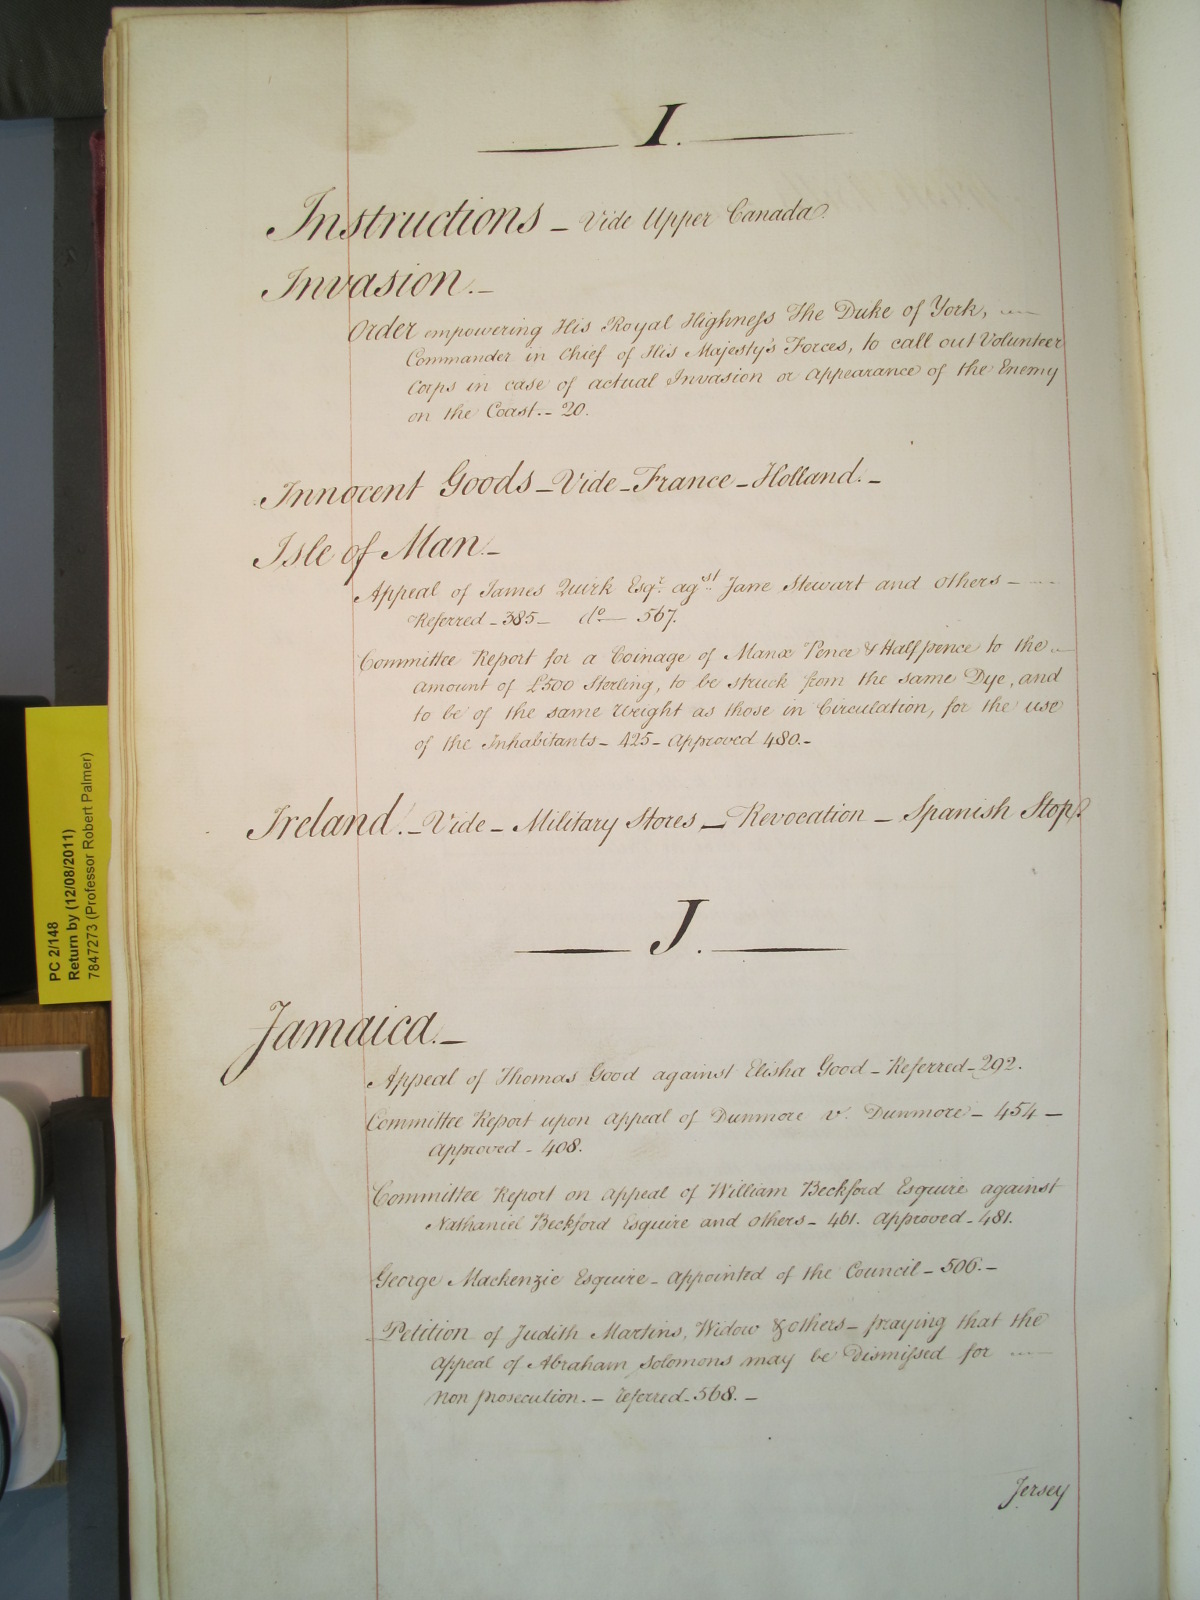 I.
Instructions - Vide Upper Canada.
Invasion.-
Order empowering His Royal Highness The Duke of York,
Commander in Chief of His Majesty's Forces, to call out Volunteer
Corps in case of actual Invasion or appearance of the Enemy
on the Coast.- 20.
Innocent Goods - Vide - France - Holland.-
Isle of Man.-
Appeal of James Quirk Esqr. agst. Jane Stewart and others -
Referred - 385 - do - 567.
Committee Report for a Coinage of Manx Pence & Halfpence to the
amount of £500 Sterling, to be struck from the same Dye, and
to be of the same Weight as those in Circulation, for the use
of the Inhabitants - 425 - approved 480.-
Ireland.- Vide - Military Stores - Revocation - Spanish Stops
J.
Jamaica.-
Appeal of Thomas Good against Elisha Good - Referred - 292.
Committee Report upon appeal of Dunmore v. Dunmore - 454 -
approved - 408.
Committee Report on appeal of William Beckford Esquire against
Nathaniel Beckford Esquire and others - 461. approved - 481.
George Mackenzie Esquire - appointed of the Council - 506.-
Petition of Judith Martins, Widow & others - praying that the
appeal of Abraham Solomons may be Dismissed for
non prosecution.- referred - 568.-
Jersey
PC 2/148
Return by (12/08/2011)
7847273 (Professor Robert Palmer)